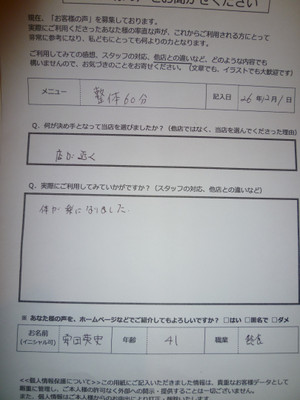 お聞かせください
現在、「お客様の声」を募集しております。
実際にご利用くださったあなた様の率直な声が、これからご利用される方にとって
非常に参考になり、私どもにとっても何よりの力となります。
ご利用してみての感想、スタッフの対応、他店との違いなど、どのような内容でも
構いませんので、お気づきのことをお寄せください。(文章でも、イラストでも大歓迎です)
メニュー 整体60分 記入日 26年12月1日
Q. 何が決め手となって当店を選びましたか?(他店ではなく、当店を選んでくださった理由)
店が近く
Q. 実際にご利用してみていかがですか?(スタッフの対応、他店との違いなど)
体が楽になりました。
※ あなた様の声を、ホームページなどでご紹介してもよろしいですか? □はい □匿名で □ダメ
お名前 年齢 41 職業
(イニシャル可)
<<個人情報保護について>>この用紙にご記入いただきました情報は、貴重なお客様データとして
厳重に管理し、ご本人様の許可なく外部への開示・提供することは一切ございません。
また、個人情報はご本人様からのお申出により